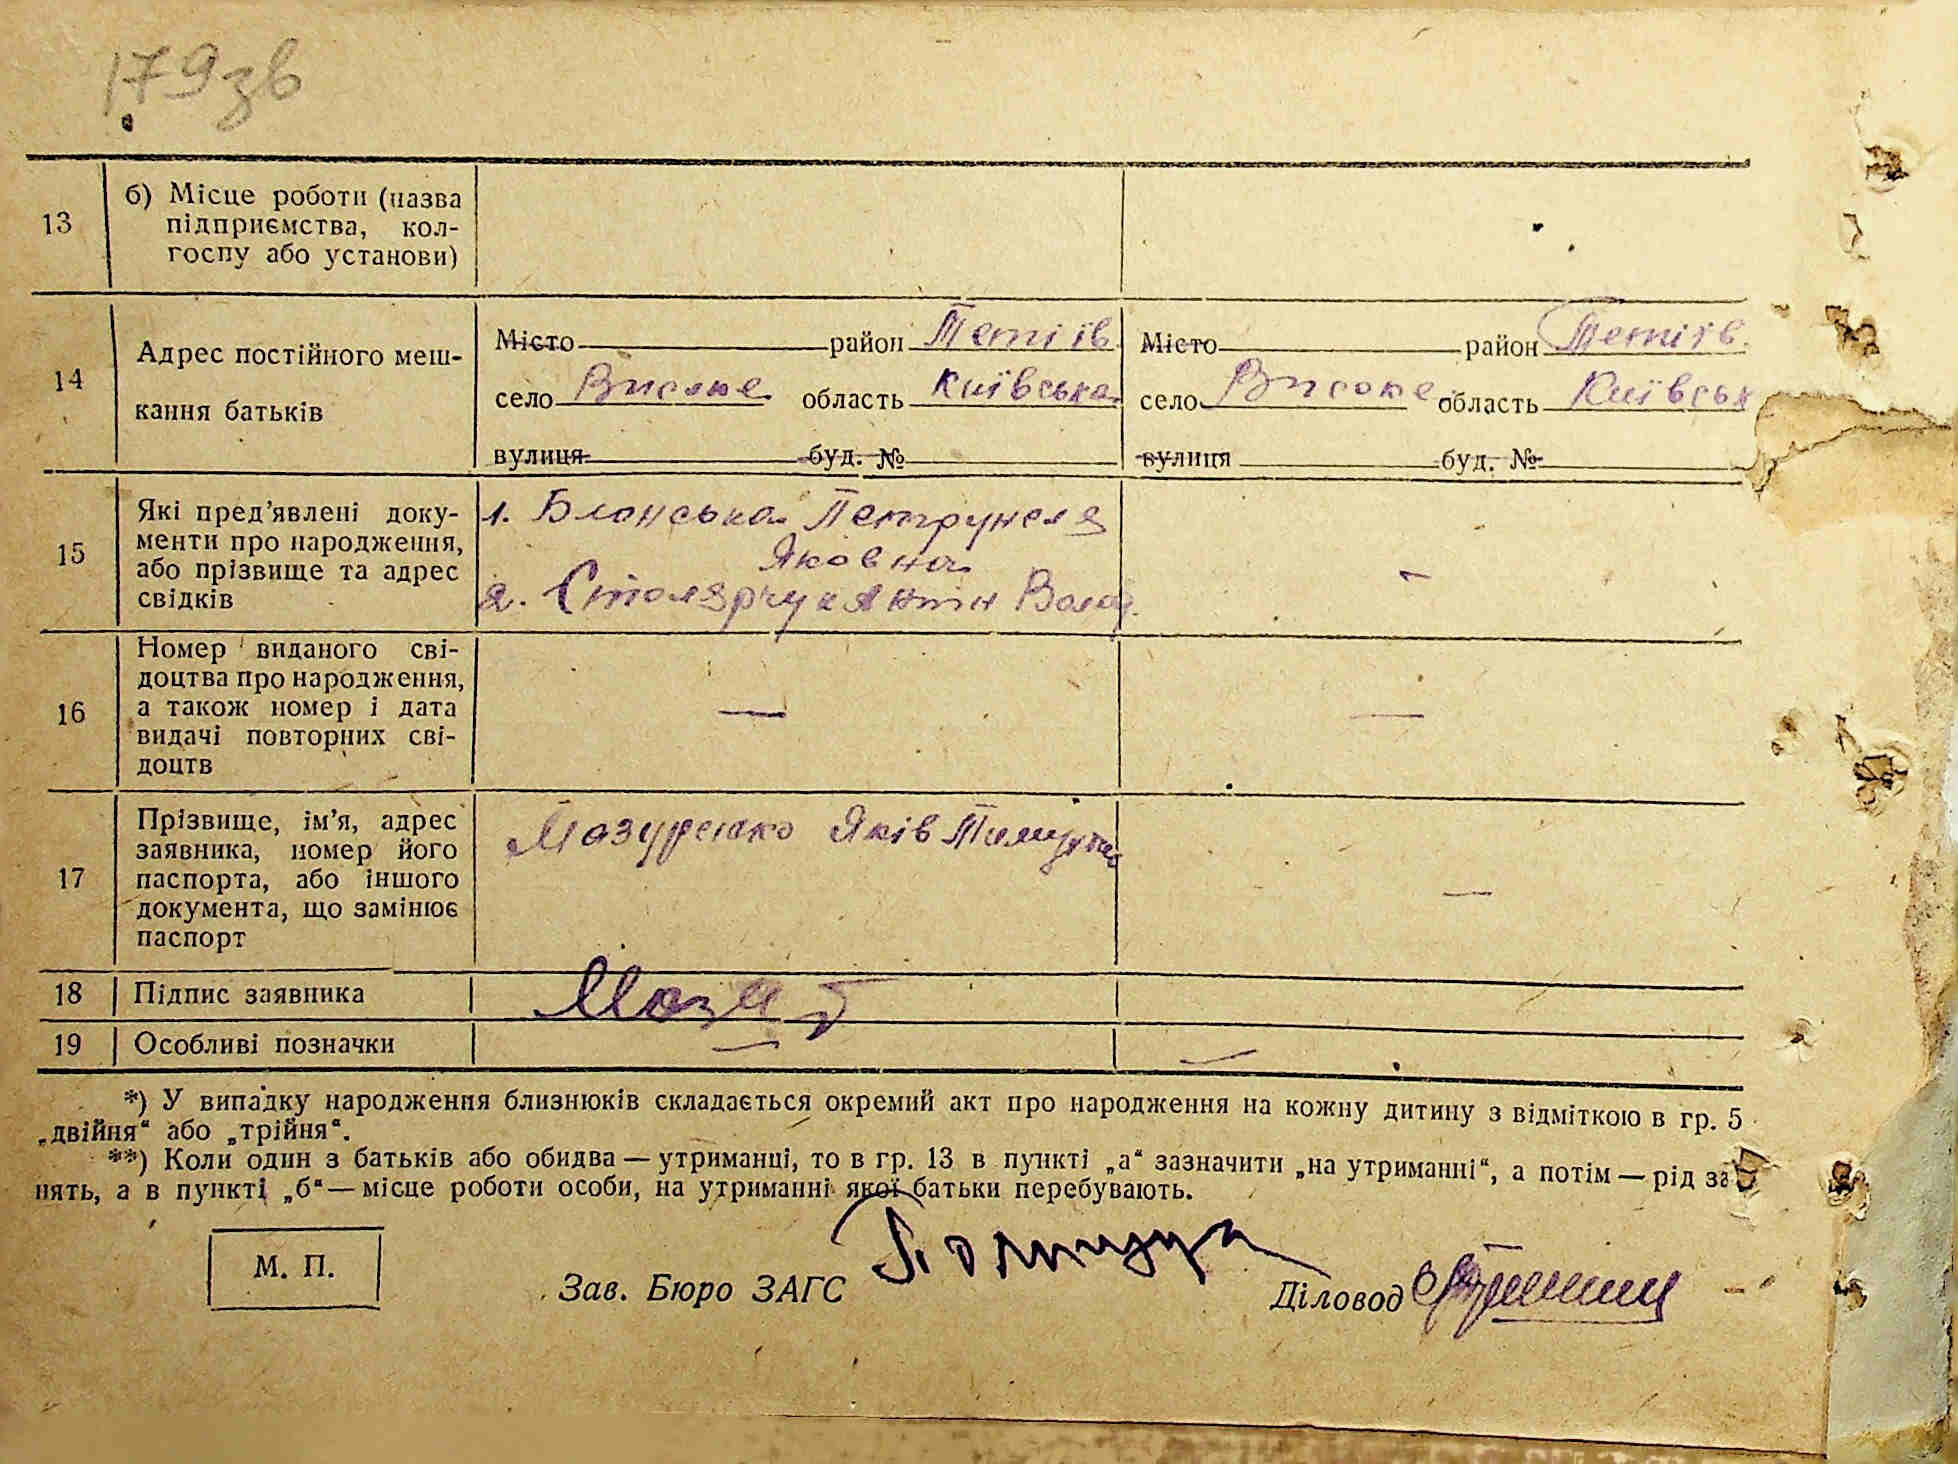 179зв
13
б) Місце роботи (назва
підприємства, кол-
госпу або установи)
14
Адрес постійного меш-
кання батьків
Місто район Тетіїв
село Високе область Київська
вулиця буд. №
Місто район Тетіїв
село Високе область Київськ
вулиця буд. №
15
Які пред'явлені доку-
менти про народження,
або прізвище та адрес
свідків
1. Блонська Петрунеля
Яковна
2. Столярчук Антін Волод.
–
16
Номер виданого сві-
доцтва про народження,
а також номер і дата
видачі повторних сві-
доцтв
—
—
17
Прізвище, ім'я, адрес
заявника, номер його
паспорта, або іншого
документа, що замінює
паспорт
Мазуренко Яків
—
18 Підпис заявника
19 Особливі позначки — —
*) У випадку народження близнюків складається окремий акт про народження на кожну дитину з відміткою в гр. 5
„двійня“ або „трійня“.
**) Коли один з батьків або обидва — утриманці, то в гр. 13 в пункті „а“ зазначити „на утриманні“, а потім — рід за
нять, а в пункті „б“ — місце роботи особи, на утриманні якої батьки перебувають.
М. П.
Зав. Бюро ЗАГС
Діловод